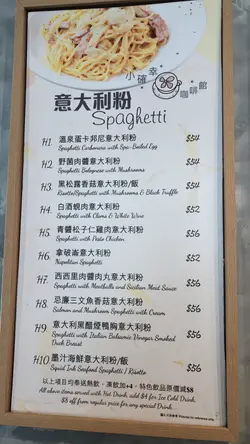 小確幸
咖啡館
意大利粉
Spaghetti
H1. 溫泉蛋卡邦尼意大利粉 $54
Spaghetti Carbonara with Spa-Boiled Egg
H2. 野菌肉醬意大利粉 $54
Spaghetti Bolognese with Mushrooms
H3. 黑松露香菇意大利粉/飯 $54
Risotto/Spaghetti with Mushrooms & Black Truffle
H4. 白酒蜆肉意大利粉 $52
Spaghetti with Clams & White Wine
H5. 青醬松子仁雞肉意大利粉 $56
Spaghetti with Pesto Chicken
H6. 拿破崙意大利粉 $52
Napolitan Spaghetti
H7. 西西里肉醬肉丸意大利粉 $56
Spaghetti with Meatballs and Sicilian Meat Sauce
H8. 忌廉三文魚香菇意大利粉 $56
Salmon and Mushroom Spaghetti with Cream
H9. 意大利黑醋煙鴨胸意大利粉 $56
Spaghetti with Italian Balsamic Vinegar Smoked
Duck Breast
H10 墨汁海鮮意大利粉/飯 $56
Squid Ink Seafood Spaghetti / Risotto
以上項目均奉送熱飲，凍飲加+4，特色飲品原價減$8
All above items served with Hot Drink, add $4 for Ice Cold Drink,
$8 off from regular price for any special Drink.